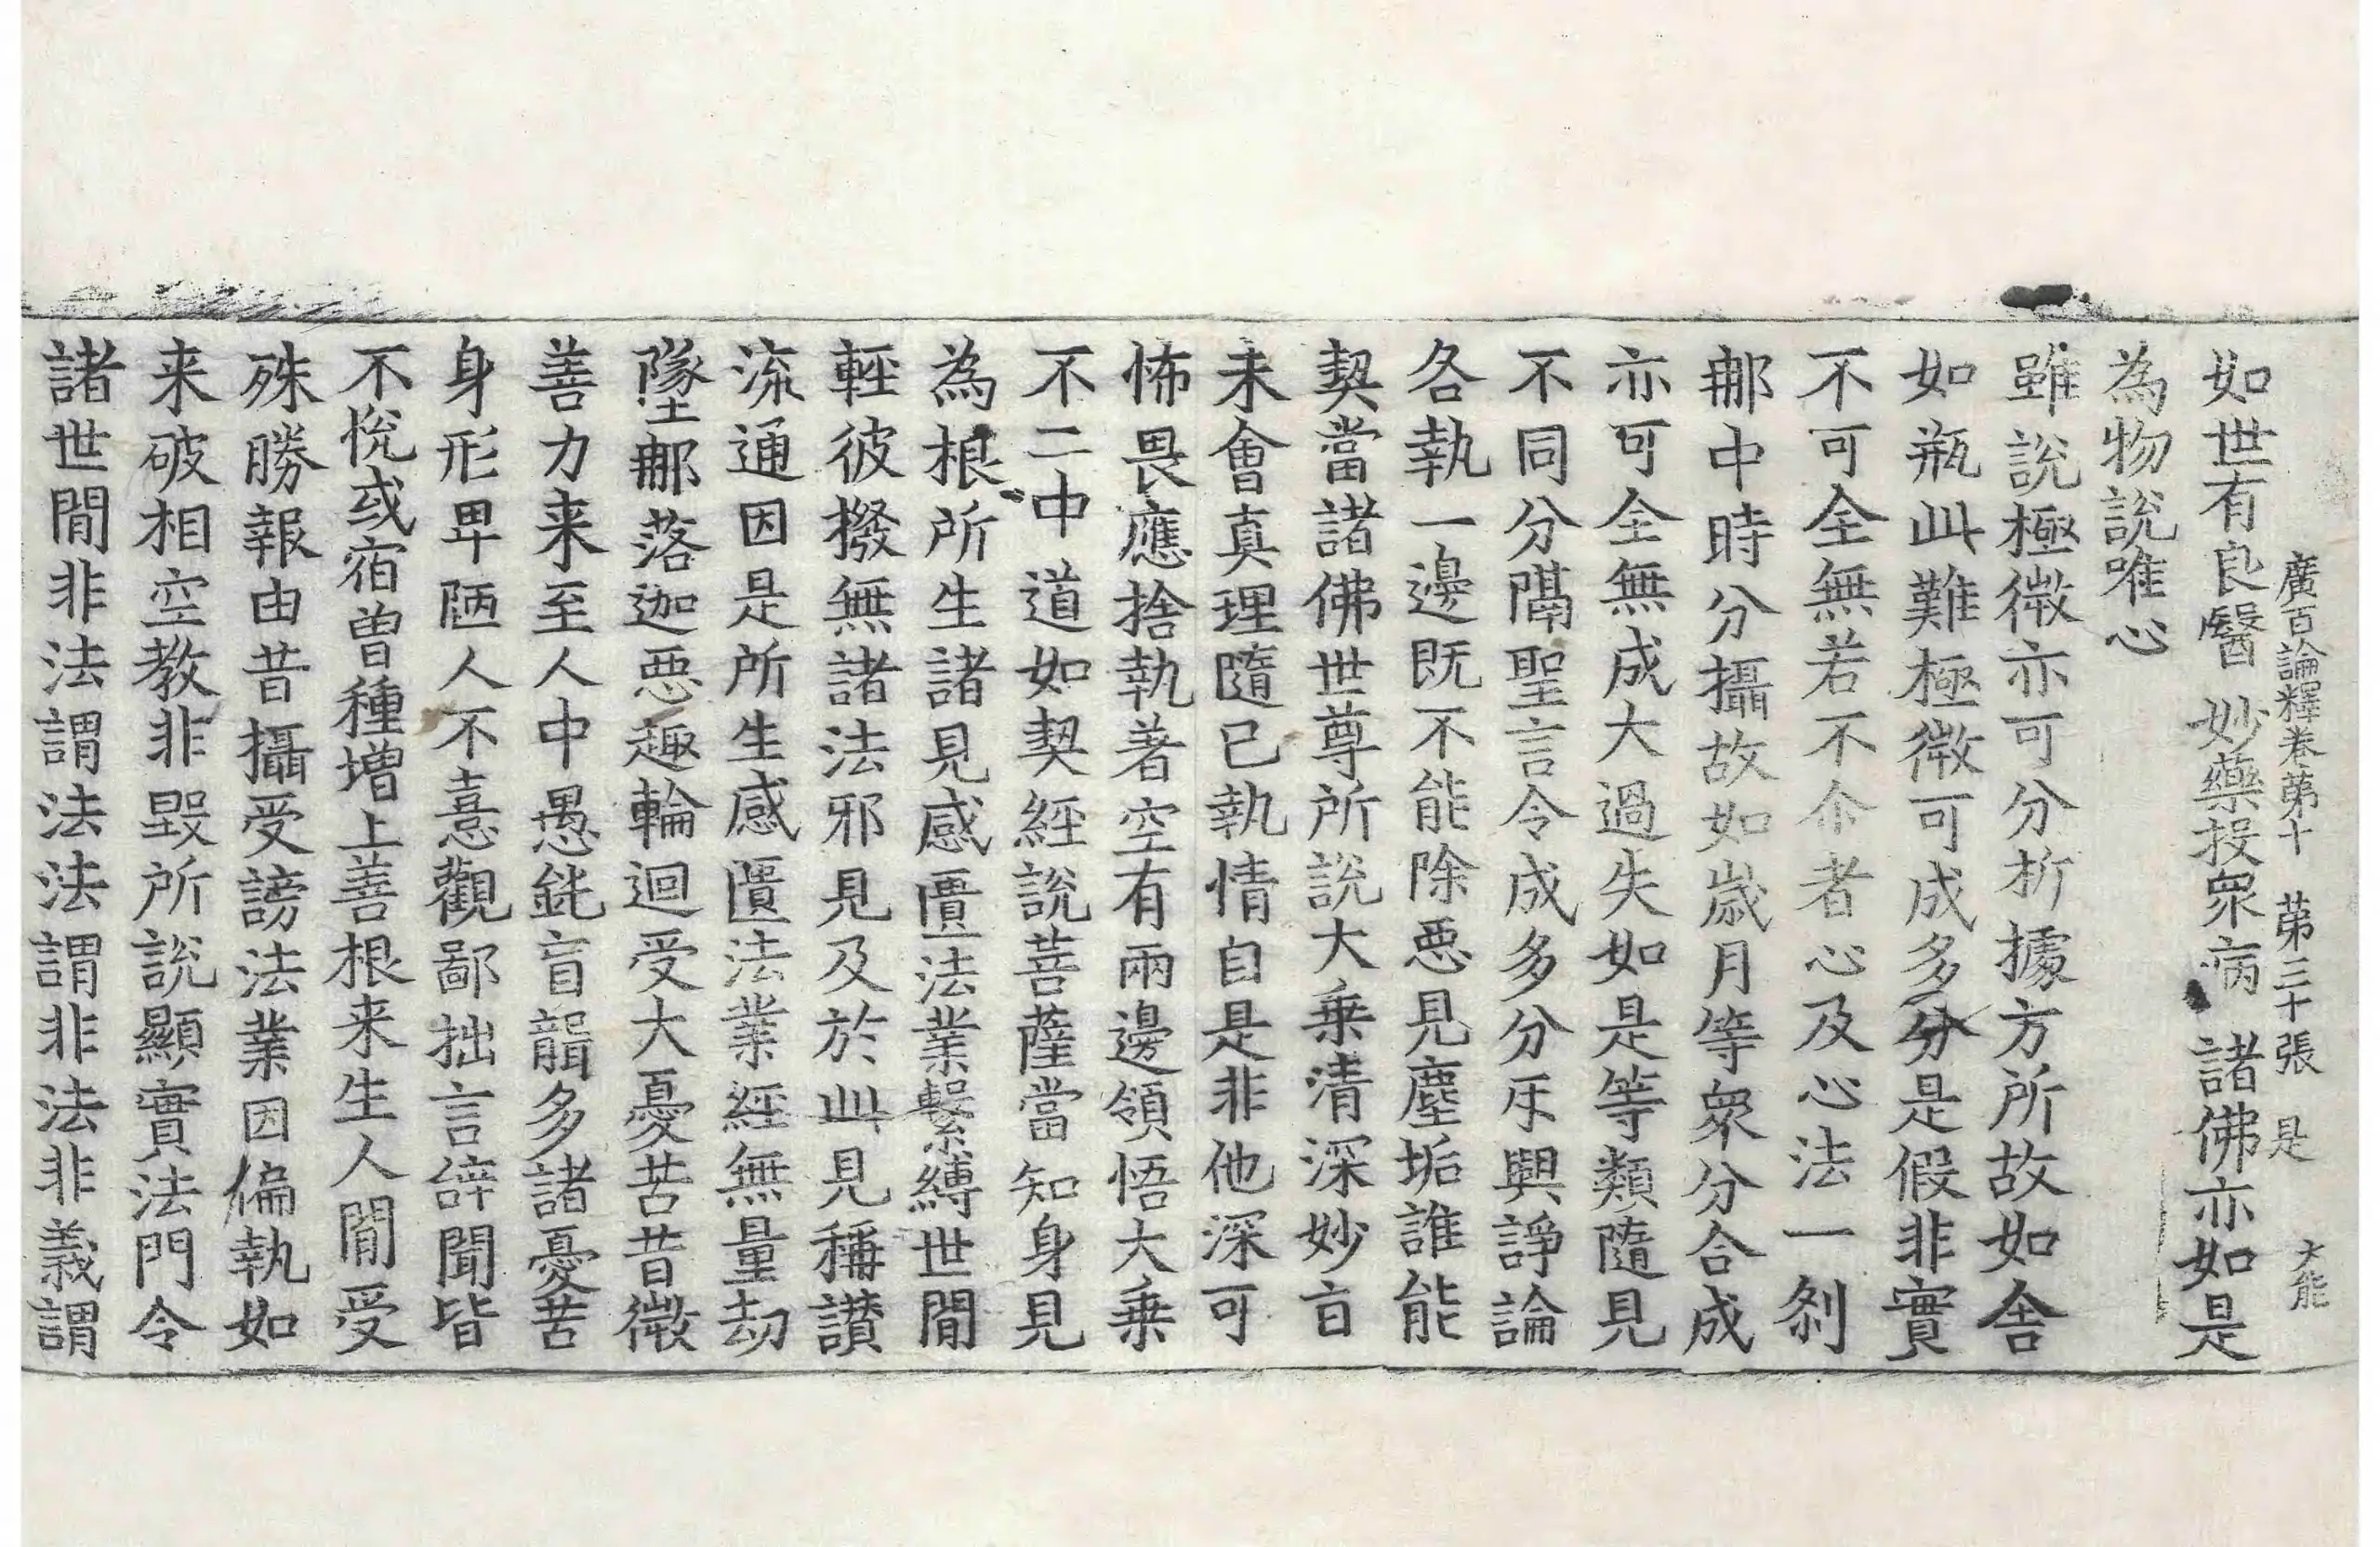 廣百論釋卷第十 第三十張 是 大能
如世有良醫 妙藥投衆病 諸佛亦如是
為物說唯心
雖說極微亦可分析據方所故如舍
如瓶此難極微可成多分是假非實
不可全無若不尒者心及心法一剎
那中時分攝故如歲月等衆分合成
亦可全無成大過失如是等類隨見
不同分隔聖言令成多分互興諍論
各執一邊既不能除惡見塵垢誰能
契當諸佛世尊所說大乗清深妙㫖
未會真理隨已執情自是非他深可
怖畏應捨執著空有兩邊領悟大乗
不二中道如契經說菩薩當知身見
為根所生諸見感匱法業繫縛世間
輕彼撥無諸法邪見及於此見稱讃
流通因是所生感匱法業經無量劫
墜那落迦惡趣輪迴受大憂苦昔微
善力来至人中愚鈍盲聾多諸憂苦
身形卑陋人不憙觀鄙拙言辝聞皆
不悅或宿曽種增上善根来生人間受
殊勝報由昔攝受謗法業因偏執如
来破相空教非毀所說顯實法門令
諸世間非法謂法法謂非法非義謂